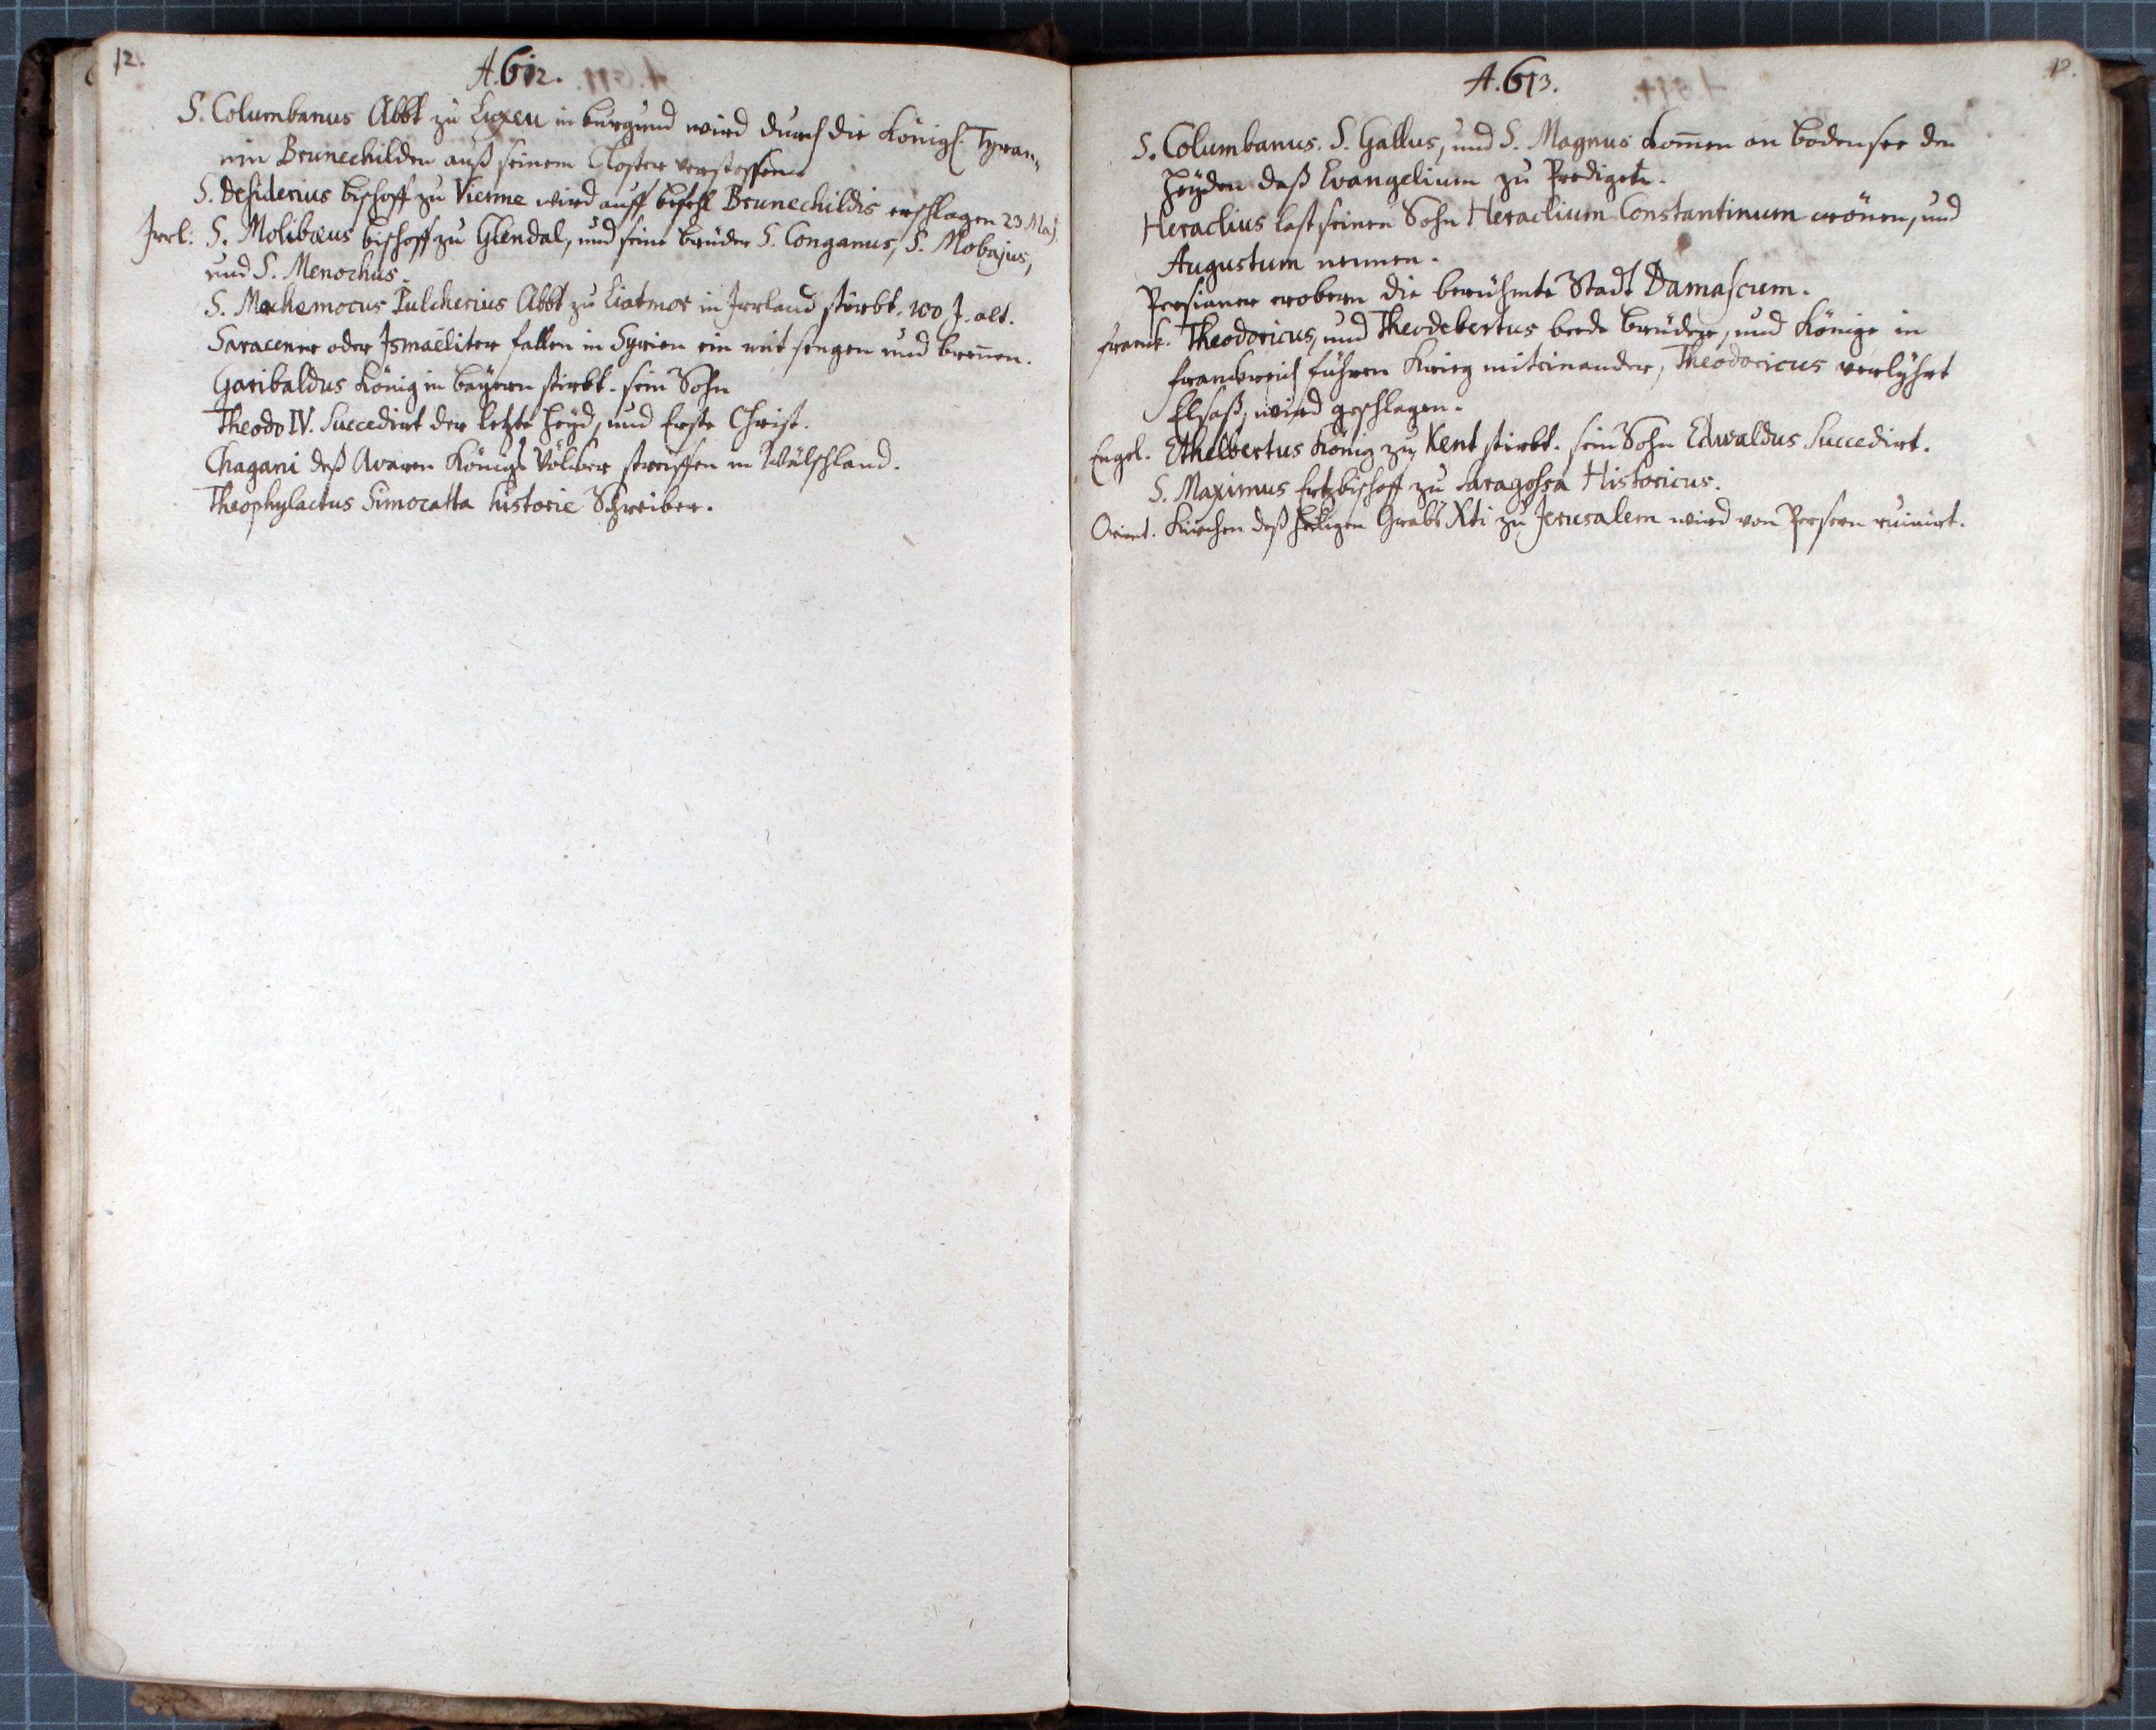 12.
A. 612.
S. Columbanus Abbt zu Luxeu in burgund wird durch die Königl. Tyran„
nin Brunechilden auß seinem Closter verstossen.
S. Desiderius bischoff zu Vienne wird auff befehl Brunechildis erschlagen 23 Maj.
Irrl: S. Molibæus bischoff zu Glendal, und seine brüder S. Conganus, S. Mobajus,
und S. Menochus.
S. Mochemocus Pulcherius Abbt zu Liatmor in Irrland stirbt. 100 J. alt.
Saracener oder Ismaëliter fallen in Syrien ein mit sengen und breñen.
Garibaldus König in bayern stirbt. sein Sohn
Theodo IV. Succedirt der letzte Heyd, und Erste Christ.
Chagani deß Avaren Königs Völcker streiffen in Wälschland.
Theophylactus Simocatta historie Schreiber.
A. 613.
S. Columbanus. S. Gallus, und S. Magnus kom̃en an bodensee den
Heÿden daß Evangelium zu Predigen.
Heraclius last seinen Sohn Heraclium Constantinum crönen, und
Augustum nennen.
Persianer erobern die berühmte Stadt Damascum.
franck. Theodoricus, und Theodebertus beede brüder, und Könige in
franckreich führen Krieg miteinander, Theodoricus
Elsaß, wird geschlagen.
Engel. Ethelbertus König zu Kent stirbt. sein Sohn Edwaldus Succedirt.
S. Maximus Ertzbischoff zu Saragossa Historicus.
Orient. Kirchen deß Heiligen Grabs Xti zu Jerusalem wird von Persern ruinirt.